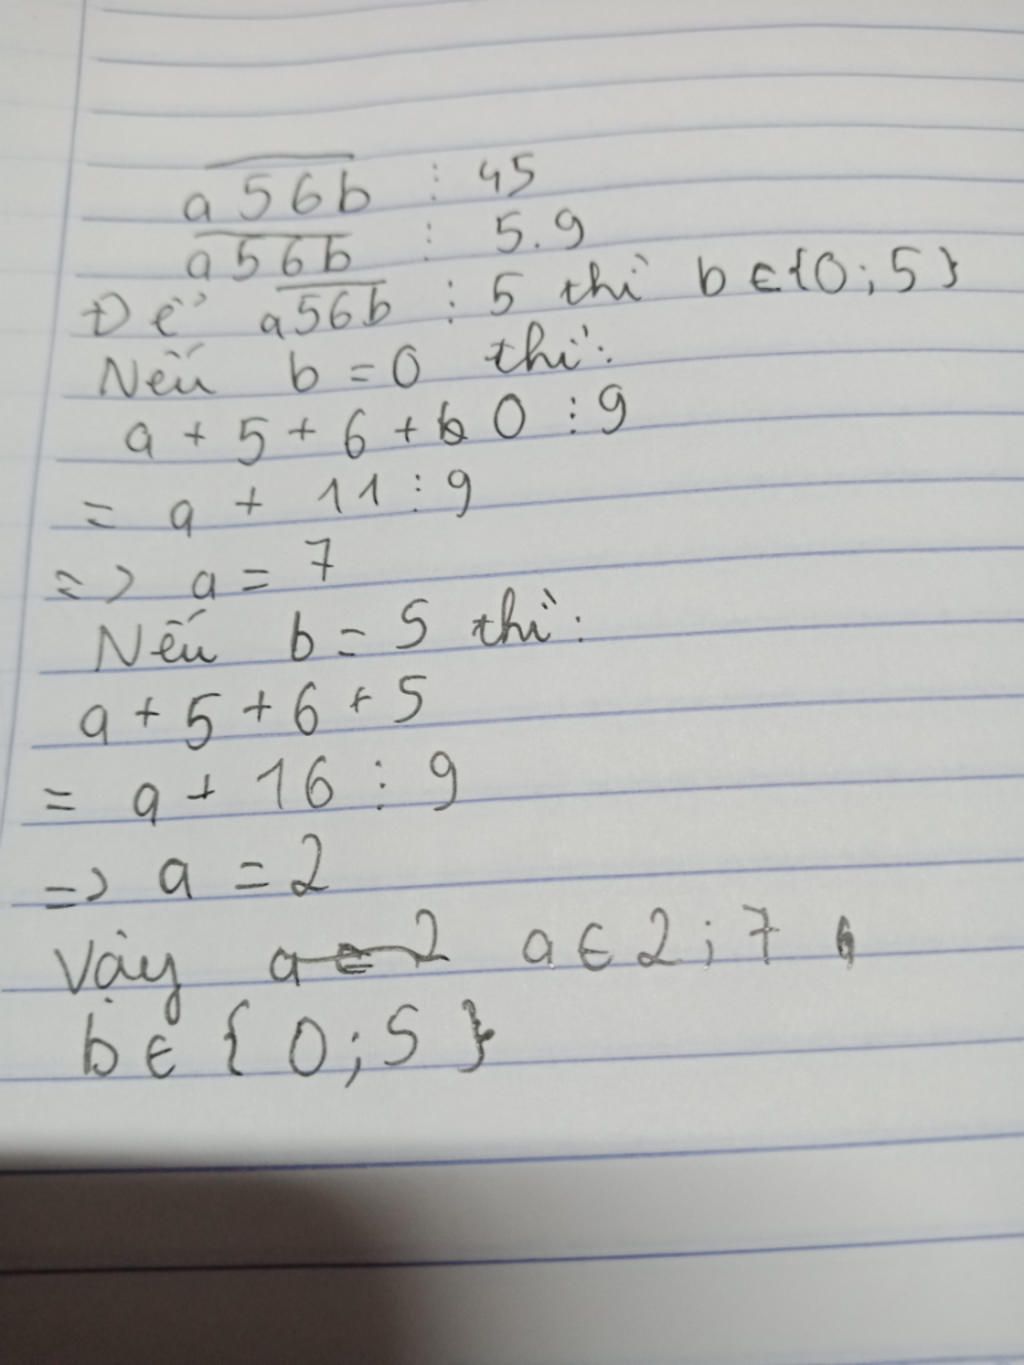 a56b ⋮ 45
a56b ⋮ 5.9
Để a56b ⋮ 5 thì b ∈ {0; 5}
Nếu b = 0 thì:
a + 5 + 6 + 0 ⋮ 9
= a + 11 ⋮ 9
=> a = 7
Nếu b = 5 thì:
a + 5 + 6 + 5
= a + 16 ⋮ 9
=> a = 2
Vậy a ∈ 2 a ∈ 2; 7
b ∈ { 0; 5 }